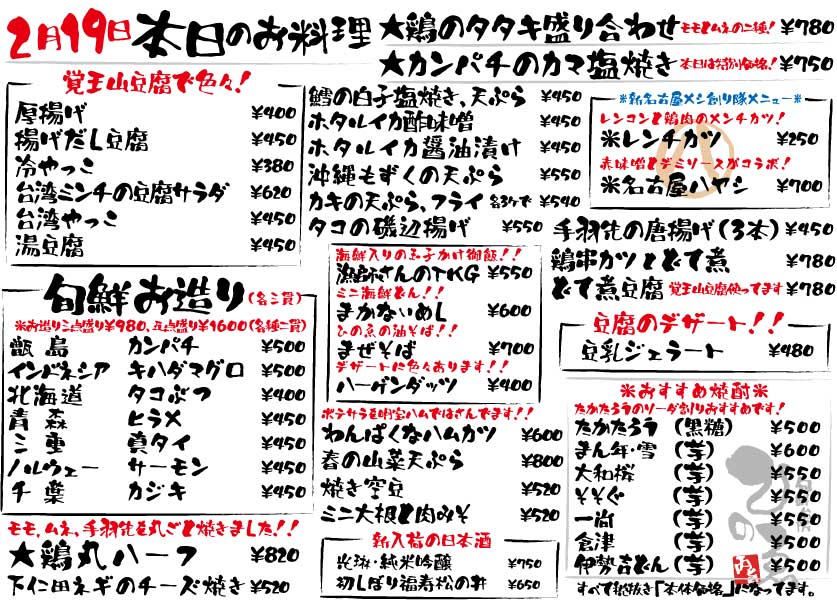 2月19日 本日のお料理
★鶏のタタキ盛り合わせ モモとムネの二種! ¥780
★カンパチのカマ塩焼き 本日は特別価格! ¥750
覚王山豆腐で色々!
厚揚げ ¥400
揚げだし豆腐 ¥450
冷やっこ ¥380
台湾ミンチの豆腐サラダ ¥620
台湾やっこ ¥450
湯豆腐 ¥450
旬鮮お造り(各三貫)
※お造り三点盛り¥980、五点盛り¥1600(各種二貫)
甑島 カンパチ ¥500
インドネシア キハダマグロ ¥500
北海道 タコぶつ ¥400
青森 ヒラメ ¥450
三重 真タイ ¥450
ノルウェー サーモン ¥450
千葉 カジキ ¥450
モモ、ムネ、手羽先を丸ごと焼きました!!
★鶏丸ハーフ ¥820
下仁田ネギのチーズ焼き ¥520
鱈の白子塩焼き、天ぷら ¥450
ホタルイカ酢味噌 ¥450
ホタルイカ醤油漬け ¥450
沖縄もずくの天ぷら ¥550
カキの天ぷら、フライ 各3ケで ¥540
タコの磯辺揚げ ¥550
海鮮入りの玉子かけ御飯!!
漁師さんのTKG ¥550
ミニ海鮮どん!!
まかないめし ¥600
ひの魚の油そば!!
まぜそば ¥700
デザートに色々あります!!
ハーゲンダッツ ¥400
ポテサラを明宝ハムではさんでます!!
わんぱくなハムカツ ¥600
春の山菜天ぷら ¥800
焼き空豆 ¥520
ミニ大根と肉みそ ¥520
新入荷の日本酒
光栄・純米吟醸 ¥750
初しぼり福寿松の井 ¥650
※新名古屋メシ創り隊メニュー※
レンコンと鶏肉のメンチカツ!
※レンチカツ ¥250
赤味噌とデミソースがコラボ!
※名古屋ハヤシ ¥700
手羽先の唐揚げ(3本) ¥450
鶏串カツとどて煮 ¥780
どて煮豆腐 覚王山豆腐使ってます ¥780
豆腐のデザート!!
豆乳ジェラート ¥480
※おすすめ焼酎※
たかたろうのソーダ割りおすすめです!
たかたろう (黒糖) ¥500
まん年・雪 (芋) ¥600
大和桜 (芋) ¥550
そそぐ (芋) ¥550
一尚 (芋) ¥550
倉津 (芋) ¥500
伊勢吉どん(芋) ¥550
すべて税抜き「本体価格」になってます。